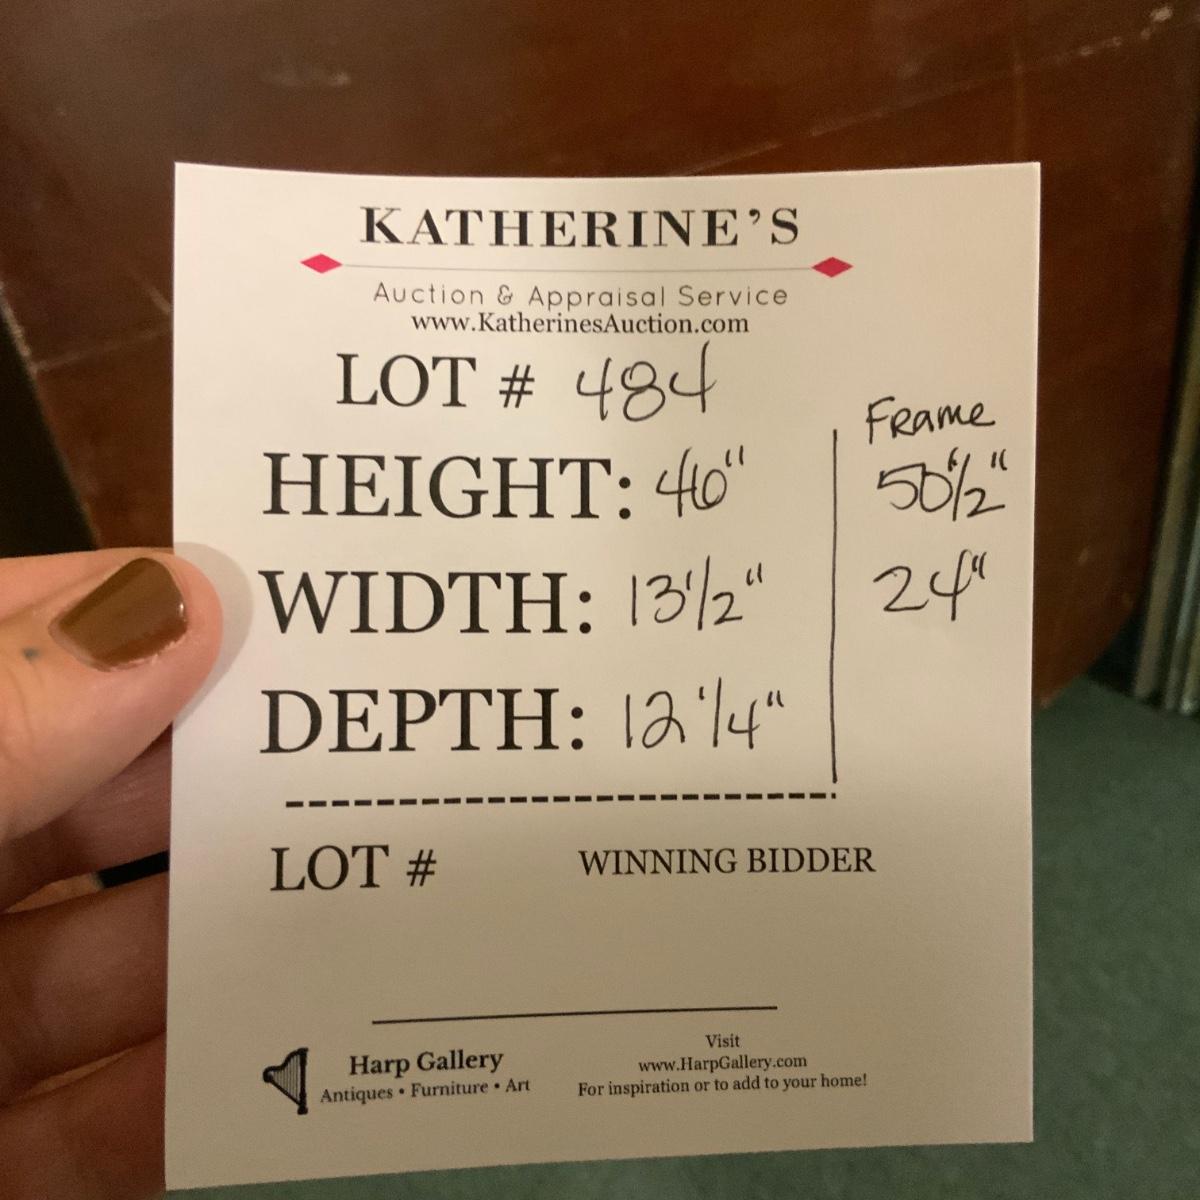 KATHERINE'S
Auction & Appraisal Service
www.KatherinesAuction.com
LOT # 484
Frame
HEIGHT: 40" 50 1/2"
WIDTH: 13 1/2" 24"
DEPTH: 12 1/4"
LOT # WINNING BIDDER
Harp Gallery
Antiques • Furniture • Art
Visit
www.HarpGallery.com
For inspiration or to add to your home!